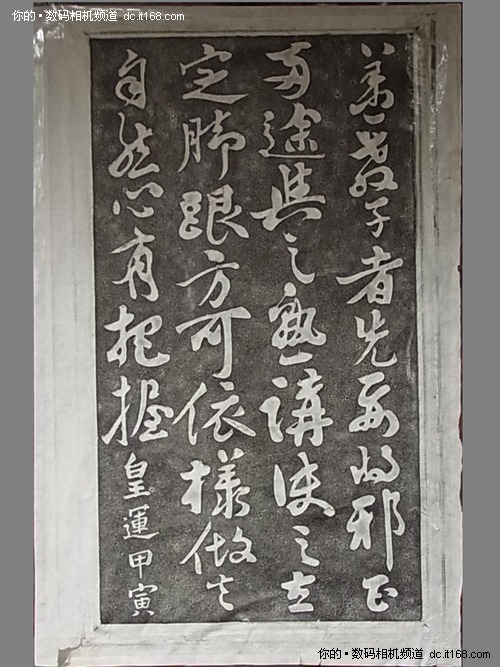 你的·数码相机频道 dc.it168.com
善教子者先要将邪正
两途與之熟講使之立
定脚跟方可依樣做去
自然心有把握
皇運甲寅
你的·数码相机频道 dc.it168.com